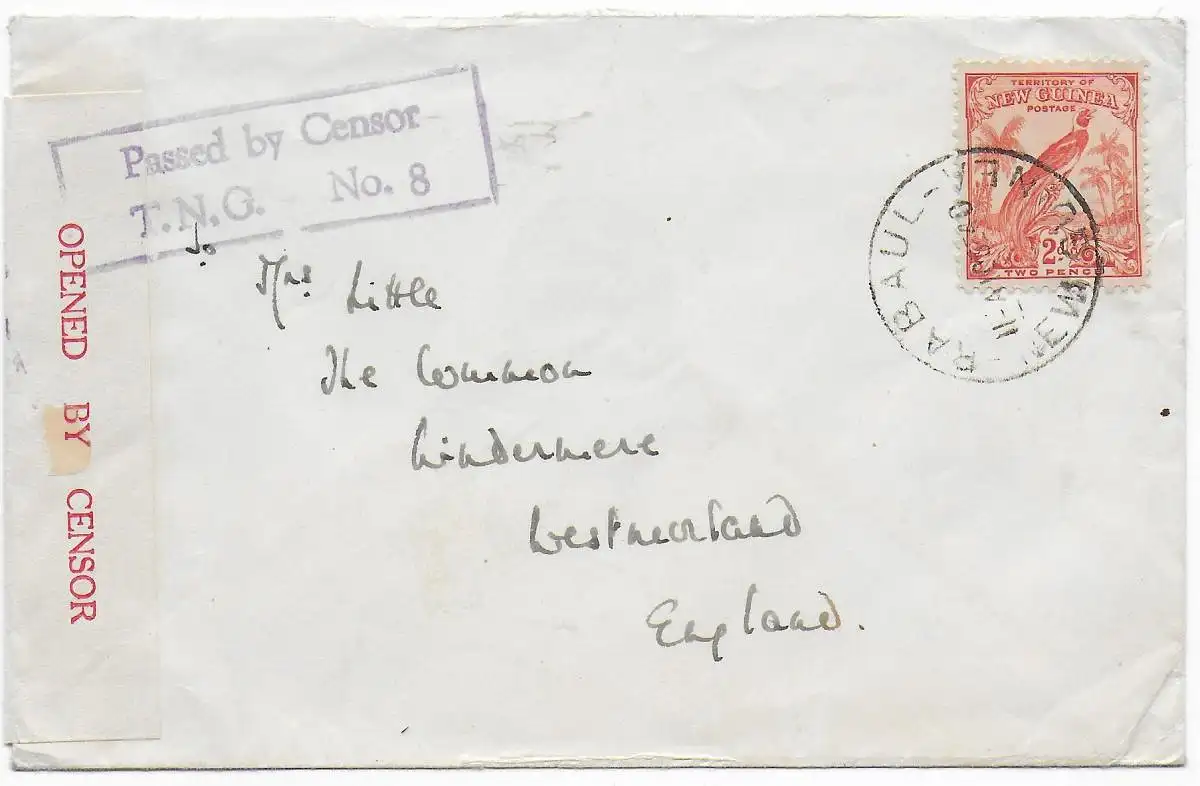 Passed by Censor
T.N.G. No. 8
TERRITORY OF
NEW GUINEA
POSTAGE
2d
TWO PENCE
RABAUL - NEW GUINEA
OPENED BY CENSOR
To
Mrs Little
The Common
Windermere
Westmorland
England.